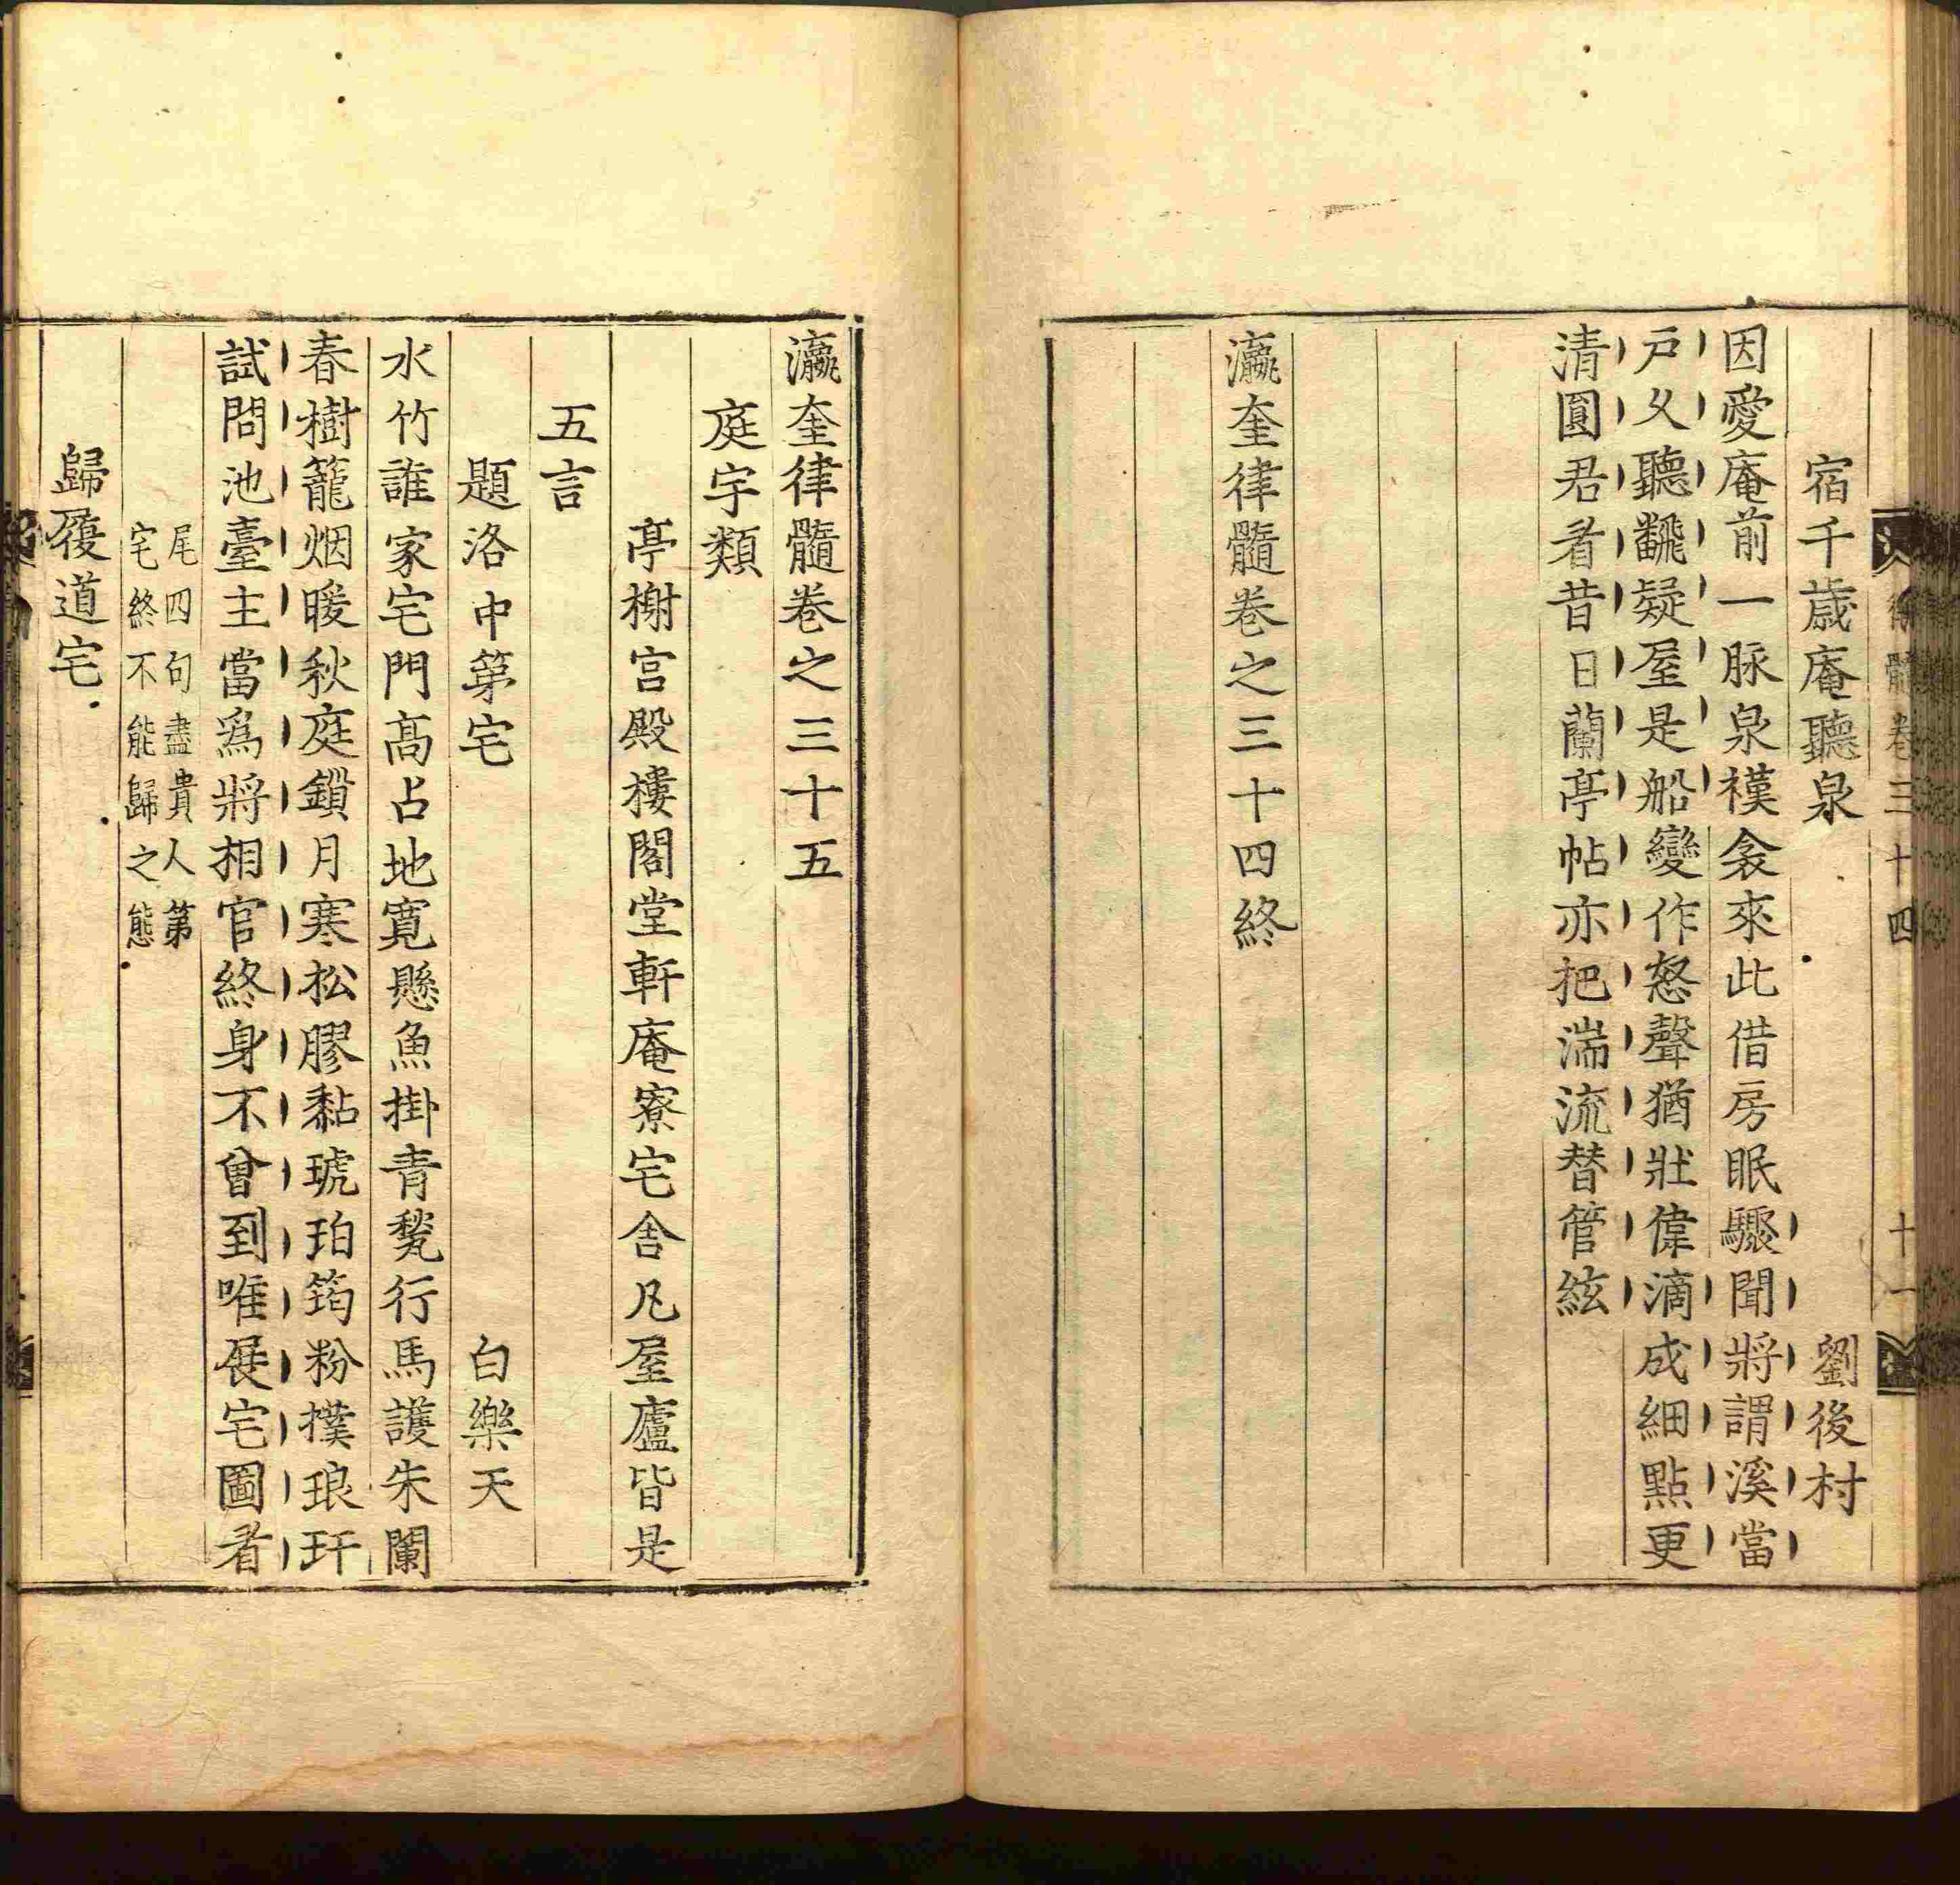 宿千歲庵聽泉 劉後村
因愛庵前一脉泉襆衾來此借房眠驟聞將謂溪當
戸久聽飜疑屋是船變作怒聲猶壯偉滴成細點更
清圓君看昔日蘭亭帖亦把湍流替管絃
瀛奎律髓卷之三十四終
律髓卷三十四 十一
瀛奎律髓卷之三十五
庭宇類
亭榭宫殿樓閣堂軒庵寮宅舍凡屋廬皆是
五言
題洛中第宅 白樂天
水竹誰家宅門高占地寬懸魚掛青甃行馬護朱闌
春樹籠烟暖秋庭鎖月寒松膠黏琥珀筠粉撲琅玕
試問池臺主當爲將相官終身不曾到唯展宅圖看
尾四句盡貴人第
宅終不能歸之態
歸履道宅